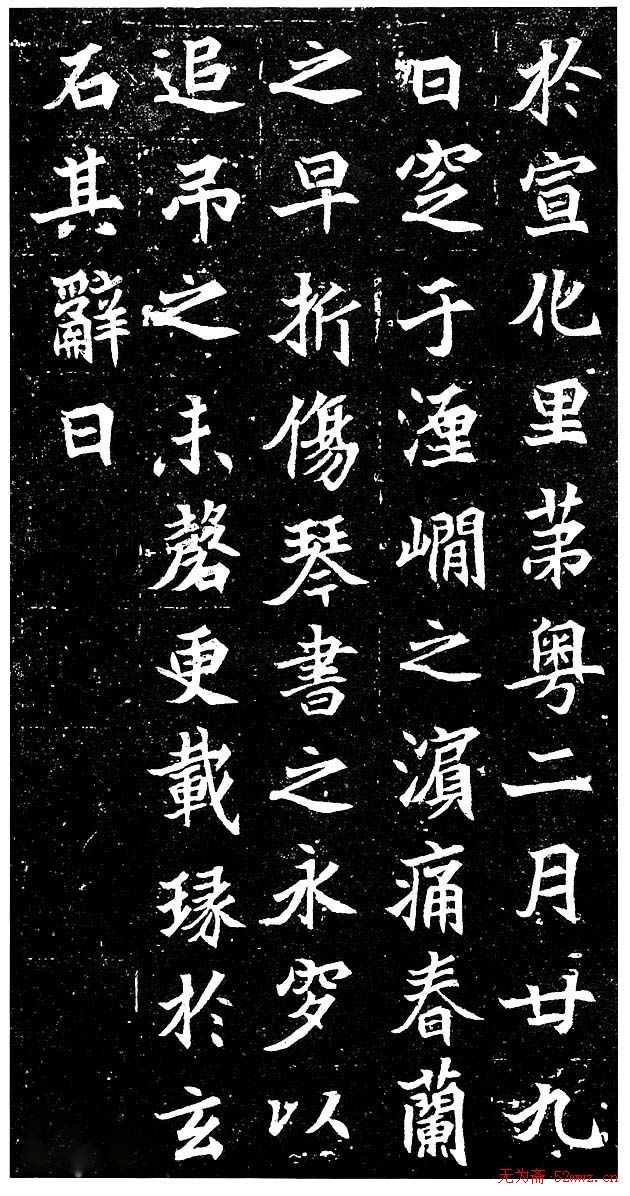 於宣化里苐粤二月廿九
日窆于瀍澗之濵痛春蘭
之早折傷琴書之永穸以
追吊之未罄更載瑑於玄
石其辭曰
无为斋-52wwz.cn